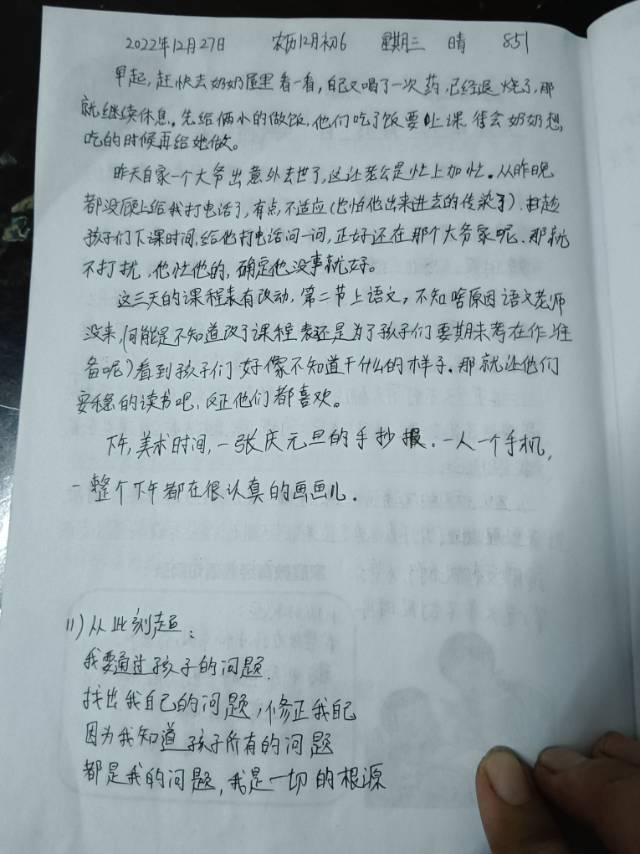 2022年12月27日 农历12月初6 星期三 晴 851
早起,赶快去奶奶屋里看一看,自己又喝了一次药,已经退烧了,那
就继续休息。先给俩小的做饭,他们吃了饭要上课,等会奶奶想
吃的时候再给她做。
昨天自家一个大爷出意外去世了,这让老公是忙上加忙。从昨晚
都没顾上给我打电话了,有点不适应(也怕他出来进去的传染了)。由趁
孩子们下课时间,给他打电话问一问,正好还在那个大爷家呢。那就
不打扰,他忙他的,确定他没事就好。
这三天的课程表有改动,第二节上语文,不知啥原因语文老师
没来,(可能是不知道改了课程表还是为了孩子们要期末考在作准
备呢)看到孩子们好像不知道干什么的样子。那就让他们
安稳的读书吧,反正他们都喜欢。
下午,美术时间,一张庆元旦的手抄报。一人一个手机,
一整个下午都在很认真的画画儿。
11)从此刻起:
我要通过孩子的问题.
找出我自己的问题,修正我自己
因为我知道孩子所有的问题
都是我的问题,我是一切的根源